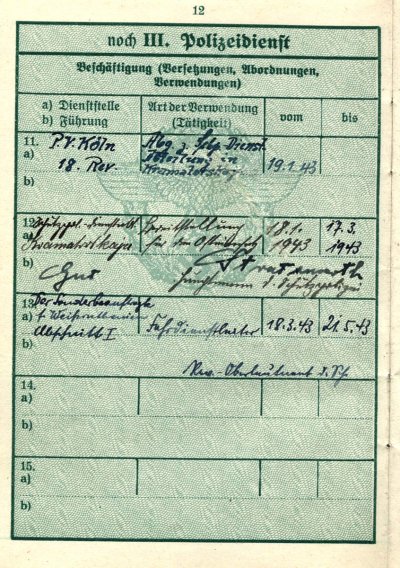 12
noch III. Polizeidienst
Beschäftigung (Versetzungen, Abordnungen,
Verwendungen)
a) Dienststelle
b) Führung
Art der Verwendung
(Tätigkeit)
vom
bis
11.
a)
P.V. Köln
18. Rev.
Abg. z.
in
19.1.43
b)
12.
a)
Kramatorskaja
für den Osteinsatz
18.1.
1943
17.3.
1943
b)
Gut
Hauptmann d. Schutzpolizei
13.
a)
Der Sonderbeauftragte
f. Weißruthenien
Abschnitt I
Fahrdienstleiter
18.3.43
21.5.43
b)
Rev.-Oberleutnant d. Sch.
14.
a)
b)
15.
a)
b)